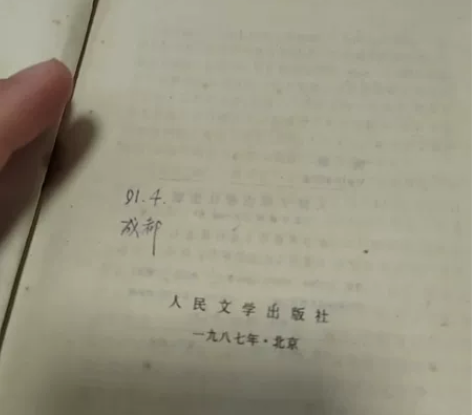 91.4.
成都
人民文学出版社
一九八七年·北京